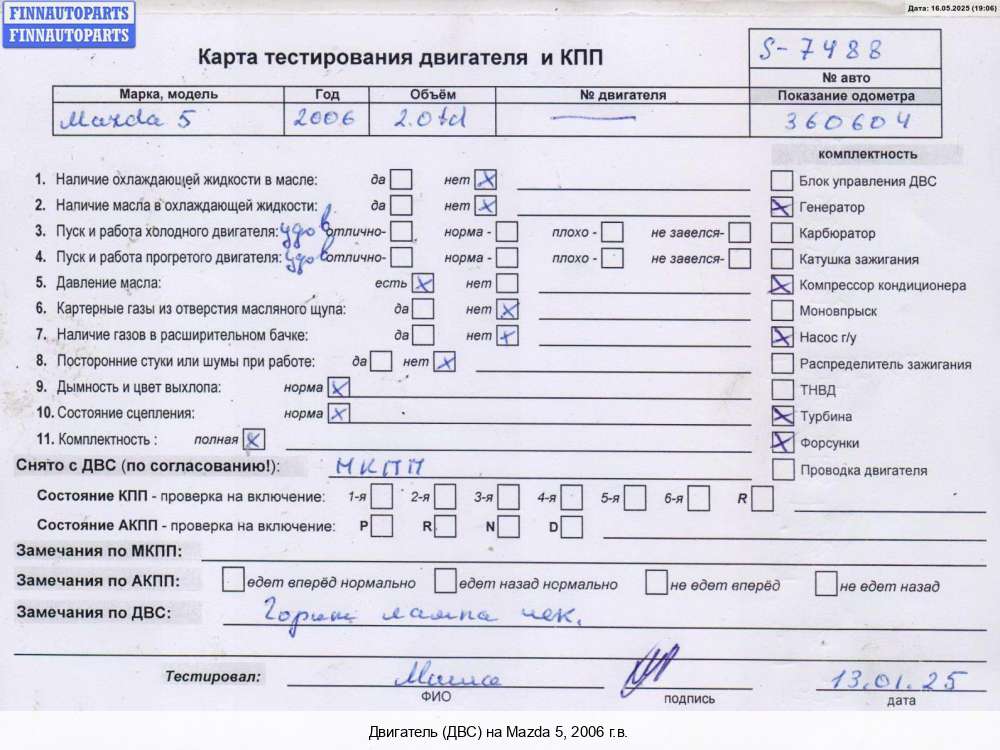 FINNAUTOPARTS
FINNAUTOPARTS
Дата: 16.05.2025 (19:06)
Карта тестирования двигателя и КПП
S-7488
№ авто
Марка, модель Год Объём № двигателя Показание одометра
Mazda 5 2006 2.0td 360604
комплектность
1. Наличие охлаждающей жидкости в масле: да нет
2. Наличие масла в охлаждающей жидкости: да нет
3. Пуск и работа холодного двигателя: удов отлично- норма - плохо - не завелся-
4. Пуск и работа прогретого двигателя: удов отлично- норма - плохо - не завелся-
5. Давление масла: есть нет
6. Картерные газы из отверстия масляного щупа: да нет
7. Наличие газов в расширительном бачке: да нет
8. Посторонние стуки или шумы при работе: да нет
9. Дымность и цвет выхлопа: норма
10. Состояние сцепления: норма
11. Комплектность : полная
Блок управления ДВС
Генератор
Карбюратор
Катушка зажигания
Компрессор кондиционера
Моновпрыск
Насос г/у
Распределитель зажигания
ТНВД
Турбина
Форсунки
Проводка двигателя
Снято с ДВС (по согласованию!): МКПП
Состояние КПП - проверка на включение: 1-я 2-я 3-я 4-я 5-я 6-я R
Состояние АКПП - проверка на включение: P R N D
Замечания по МКПП:
Замечания по АКПП: едет вперёд нормально едет назад нормально не едет вперёд не едет назад
Замечания по ДВС: Горит лампа чек.
Тестировал: 13.01.25
ФИО подпись дата
Двигатель (ДВС) на Mazda 5, 2006 г.в.